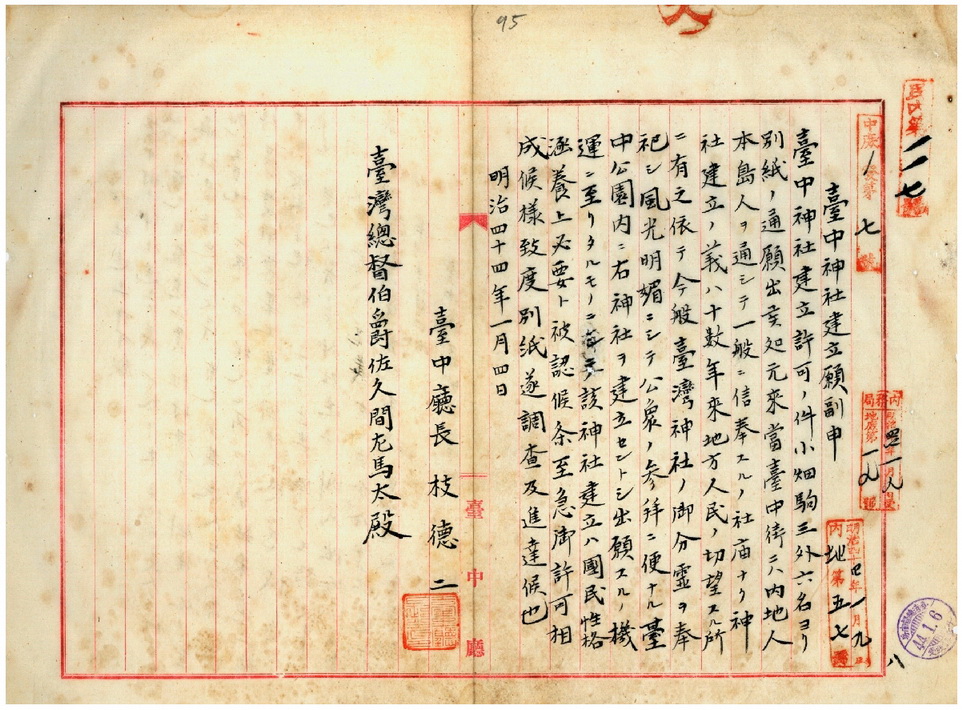 95
中廳
一七
一一七
臺中神社建立願副申
臺中神社建立許可ノ件小畑駒三外六名ヨリ
別紙ノ通願出候処元來當臺中街ニハ内地人
本島人ヲ通シテ一般ニ信奉スルノ社庙ナク神
社建立ノ義ハ十数年來地方人民ノ切望スル所
ニ有之依テ今般臺灣神社ノ御分霊ヲ奉
祀シ風光明媚ニシテ公衆ノ参拝ニ便ナル臺
中公園内ニ右神社ヲ建立セントシ出願スルノ機
運ニ至リタルモノニ有之該神社建立ハ國民性格
涵養上必要ト被認候条至急御許可相
成候様致度別紙遂調査及進達候也
明治四十四年一月四日
臺中廳長枝德二
臺灣總督伯爵佐久間左馬太殿
臺中廳
内務局
地第五七號
44.1.6